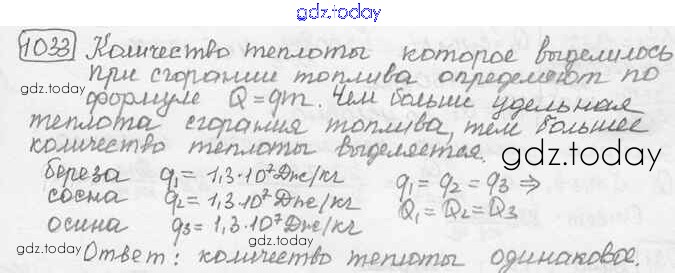 gdz.today
1033 Количество теплоты которое выделилось
при сгорании топлива определяют по
gdz.today
формуле Q = qm. Чем больше удельная
теплота сгорания топлива, тем большее
количество теплоты выделяется.
gdz.today
береза q₁ = 1,3·10⁷ Дж/кг q₁ = q₂ = q₃ ⇒
gdz.today
сосна q₂ = 1,3·10⁷ Дж/кг Q₁ = Q₂ = Q₃
осина q₃ = 1,3·10⁷ Дж/кг
gdz.today
Ответ: количество теплоты одинаковое.
gdz.today